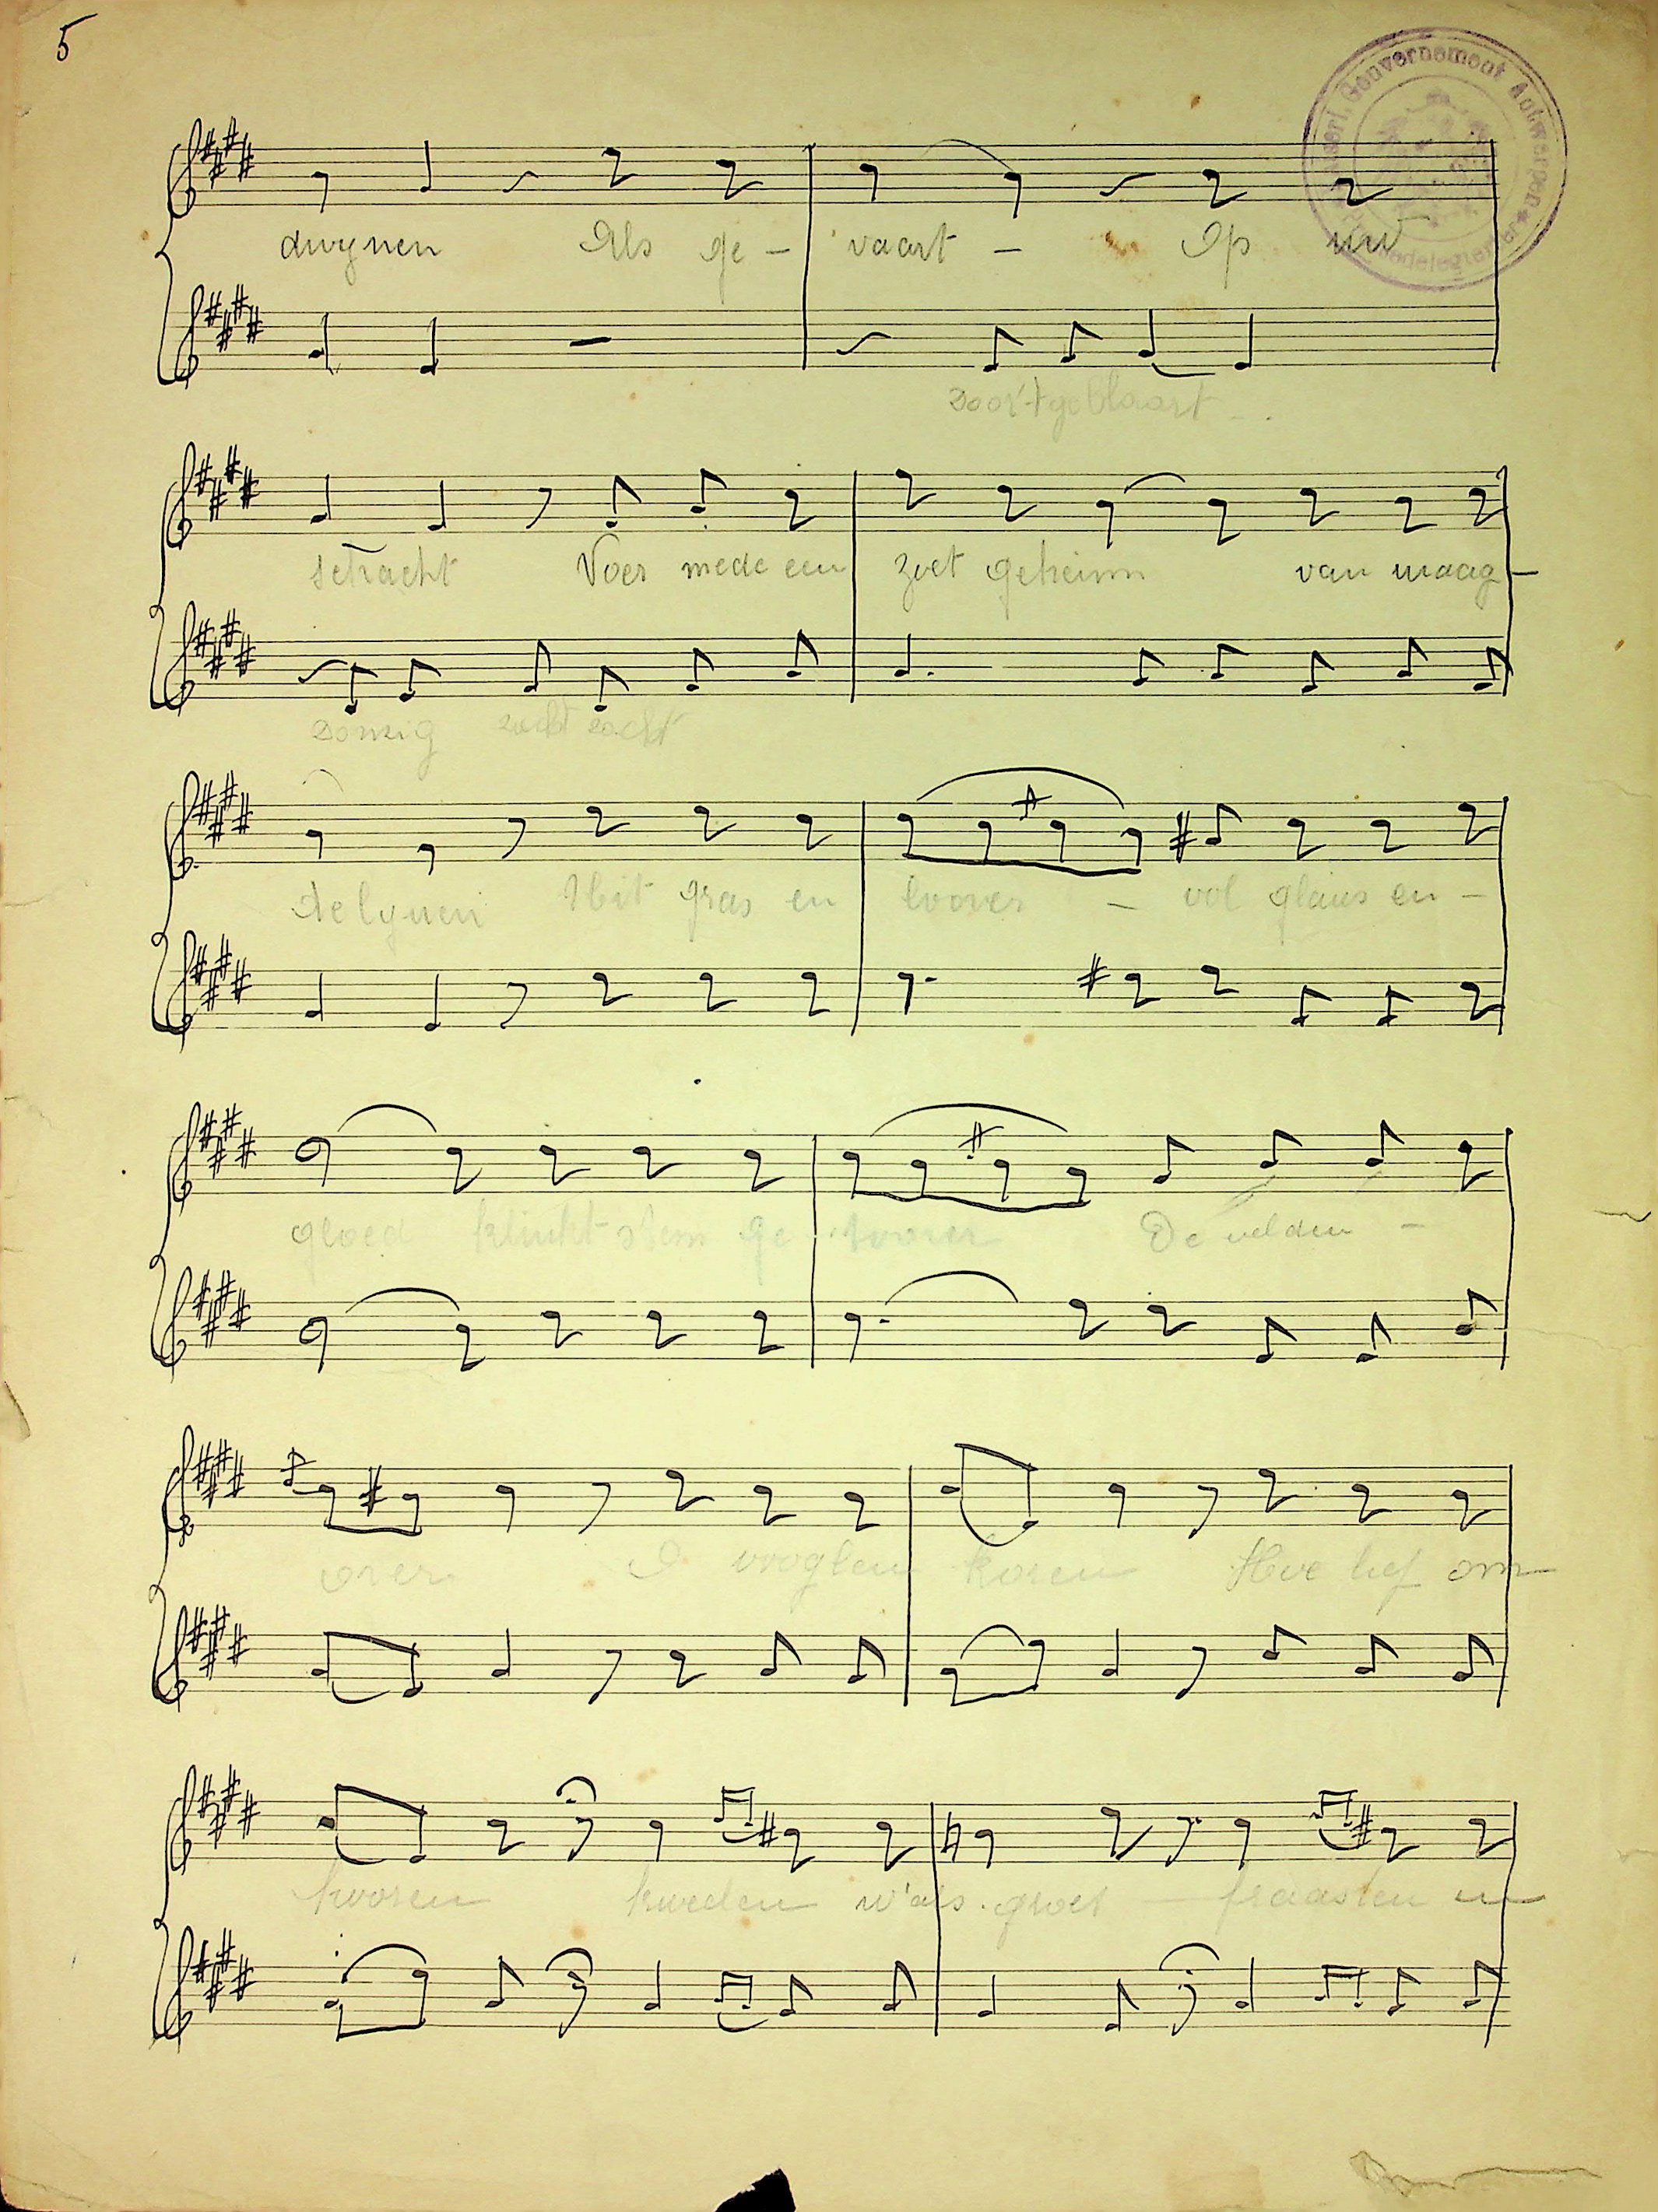 5
Kaiserl. Gouvernement Antwerpen
dwynen Als ge - vaart - Op uw
Door 't geblaart -
schacht Voer mede een zoet geheim van maag -
Donzig zacht zacht
delynen Uit gras en loover - vol glans en -
gloed klinkt stem ge - toover De velden -
over vooglen koren Hoe lief om
kooren kweelen w'als groet - en